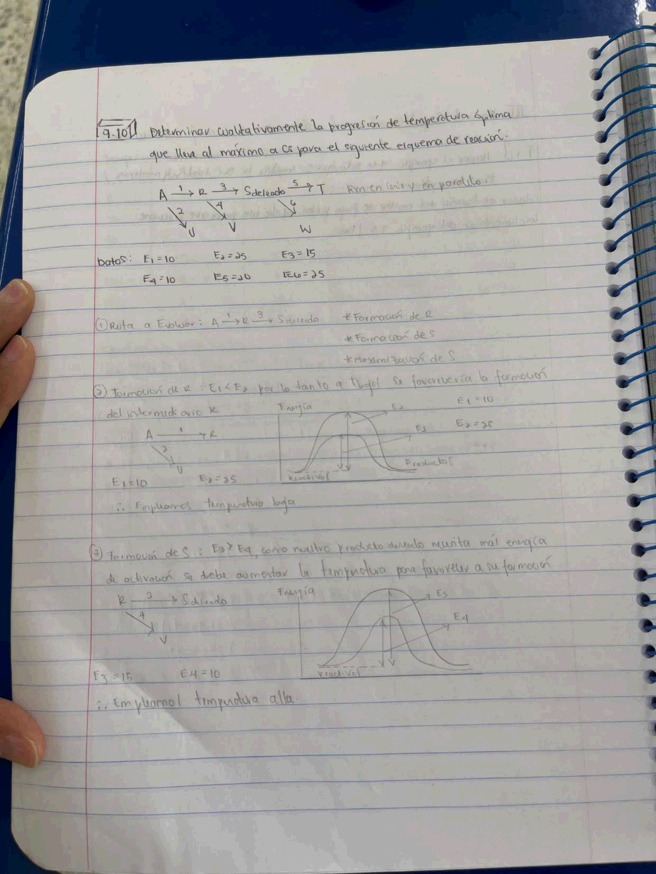 9.10 Determinar cualitativamente la progresión de temperatura óptima
que lleva al máximo a Cs para el siguiente esquema de reacción.
A 1→ R 3→ Sdeseado 5→ T Rxn en serie y en paralelo
2 4 6
U V W
Datos: E1=10 E2=25 E3=15
E4=10 E5=20 E6=25
① Ruta a Evaluar: A 1→ R 3→ Sdeseado * Formación de R
* Formación de S
* Maximización de S
② Formación de R : E1<E2 por lo tanto a ↓ se favorecería la formación
del intermediario R
Energía E2 E1=10
A 1→ R E1 E2=25
2
U Reactivos Productos
E1=10 E2=25
∴ Empleamos temperatura baja
③ Formación de S : E3>E4, como nuestro producto necesita más energía
de activación se debe aumentar la temperatura para favorecer a su formación
R 3→ Sdeseado Energía E3
4 E4
V Reactivos
E3=15 E4=10
∴ Empleamos temperatura alta.